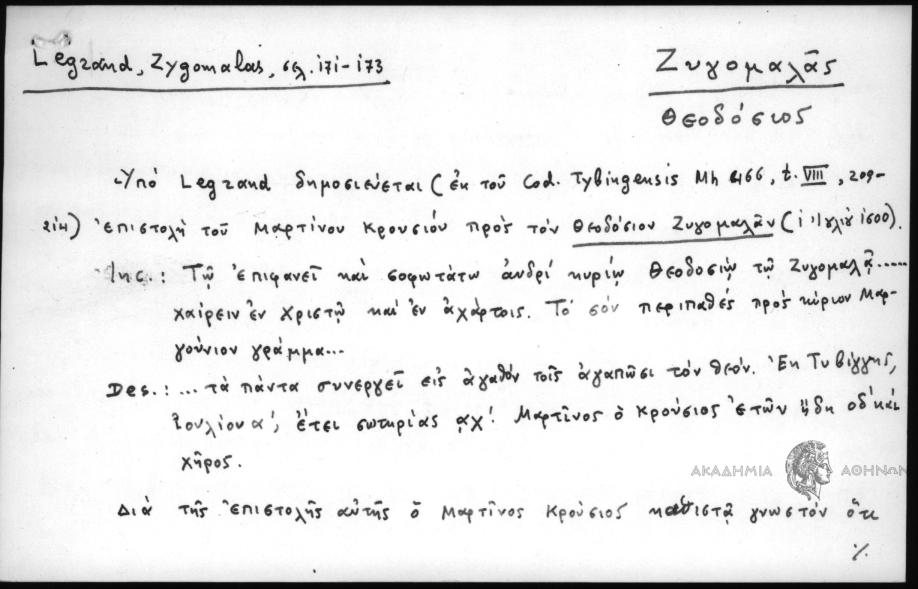 Legrand, Zygomalas, σελ. 171-173
Ζυγομαλᾶς
Θεοδόσιος
Ὑπό Legrand δημοσιεύεται (ἐκ τοῦ Cod. Tybingensis Mh 466, t. VIII, 209-
214) ἐπιστολή τοῦ Μαρτίνου Κρουσίου πρός τόν Θεοδόσιον Ζυγομαλᾶν (1 1600).
Inc.: Τῷ ἐπιφανεῖ καί σοφωτάτω ἀνδρί κυρίῳ Θεοδοσίῳ τῷ Ζυγομαλᾷ......
χαίρειν ἐν Χριστῷ καί ἐν Τό σόν περιπαθές πρός κύριον Μαρ-
γούνιον γράμμα...
Des.: ... τά πάντα συνεργεῖ εἰς ἀγαθόν τοῖς ἀγαπῶσι τόν θεόν. Ἐκ Τυβίγγης,
Ἰουλίου α', ἔτει σωτηρίας ᾳχ'. Μαρτῖνος ὁ Κρούσιος ἐτῶν ἤδη οδ' καί
χῆρος.
ΑΚΑΔΗΜΙΑ ΑΘΗΝΩΝ
Διά τῆς ἐπιστολῆς αὐτῆς ὁ Μαρτῖνος Κρούσιος καθιστᾷ γνωστόν ὅτι
·/.